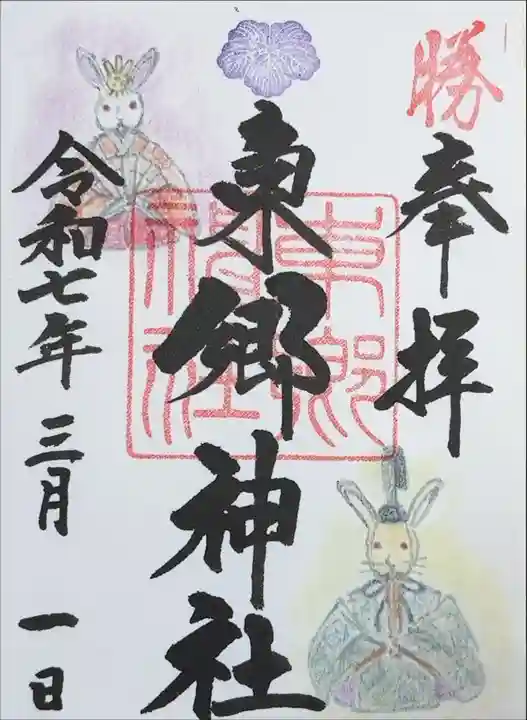 勝
奉拝
東郷神社
東郷
神社
令和七年 三月 一日